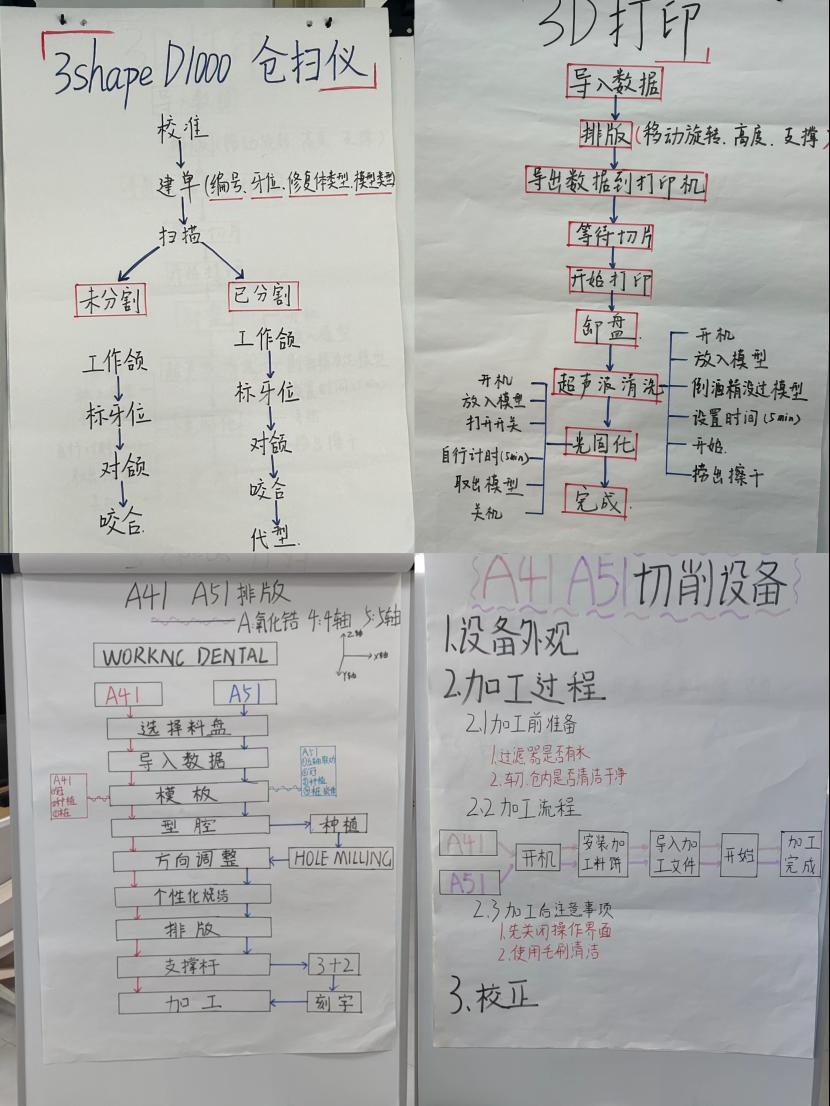 3shape D1000 仓扫仪
校准
建单(编号、牙位、修复体类型、模型类型)
扫描
未分割
已分割
工作颌
标牙位
对颌
咬合.
工作颌
标牙位
对颌
咬合
代型.
3D打印
导入数据
排版(移动旋转、高度、支撑)
导出数据到打印机
等待切片
开始打印
卸盘.
超声波清洗
光固化
完成.
开机
放入模型
打开开关
自行计时(5min)
取出模型
关机
开机
放入模型
倒酒精没过模型
设置时间(5min)
开始.
捞出擦干
A41 A51排版
A:氧化锆 4:4轴 5:5轴
WORKNC DENTAL
Z轴
X轴
Y轴
A41
A51
选择料盘
导入数据
模板
型腔
种植
方向调整
HOLE MILLING
个性化烧结
排版
支撑杆
3+2
加工
刻字
A41
①冠
②种植
③桩
A51
②冠
③种植
A41 A51切削设备
1.设备外观
2.加工过程
2.1加工前准备
1.过滤器是否有水
2.车刀、仓内是否清洁干净
2.2加工流程
A41
A51
开机
安装加
工料饼
导入加
工文件
开始
加工
完成
2.3加工后注意事项
1.先关闭操作界面
2.使用毛刷清洁
3.校正